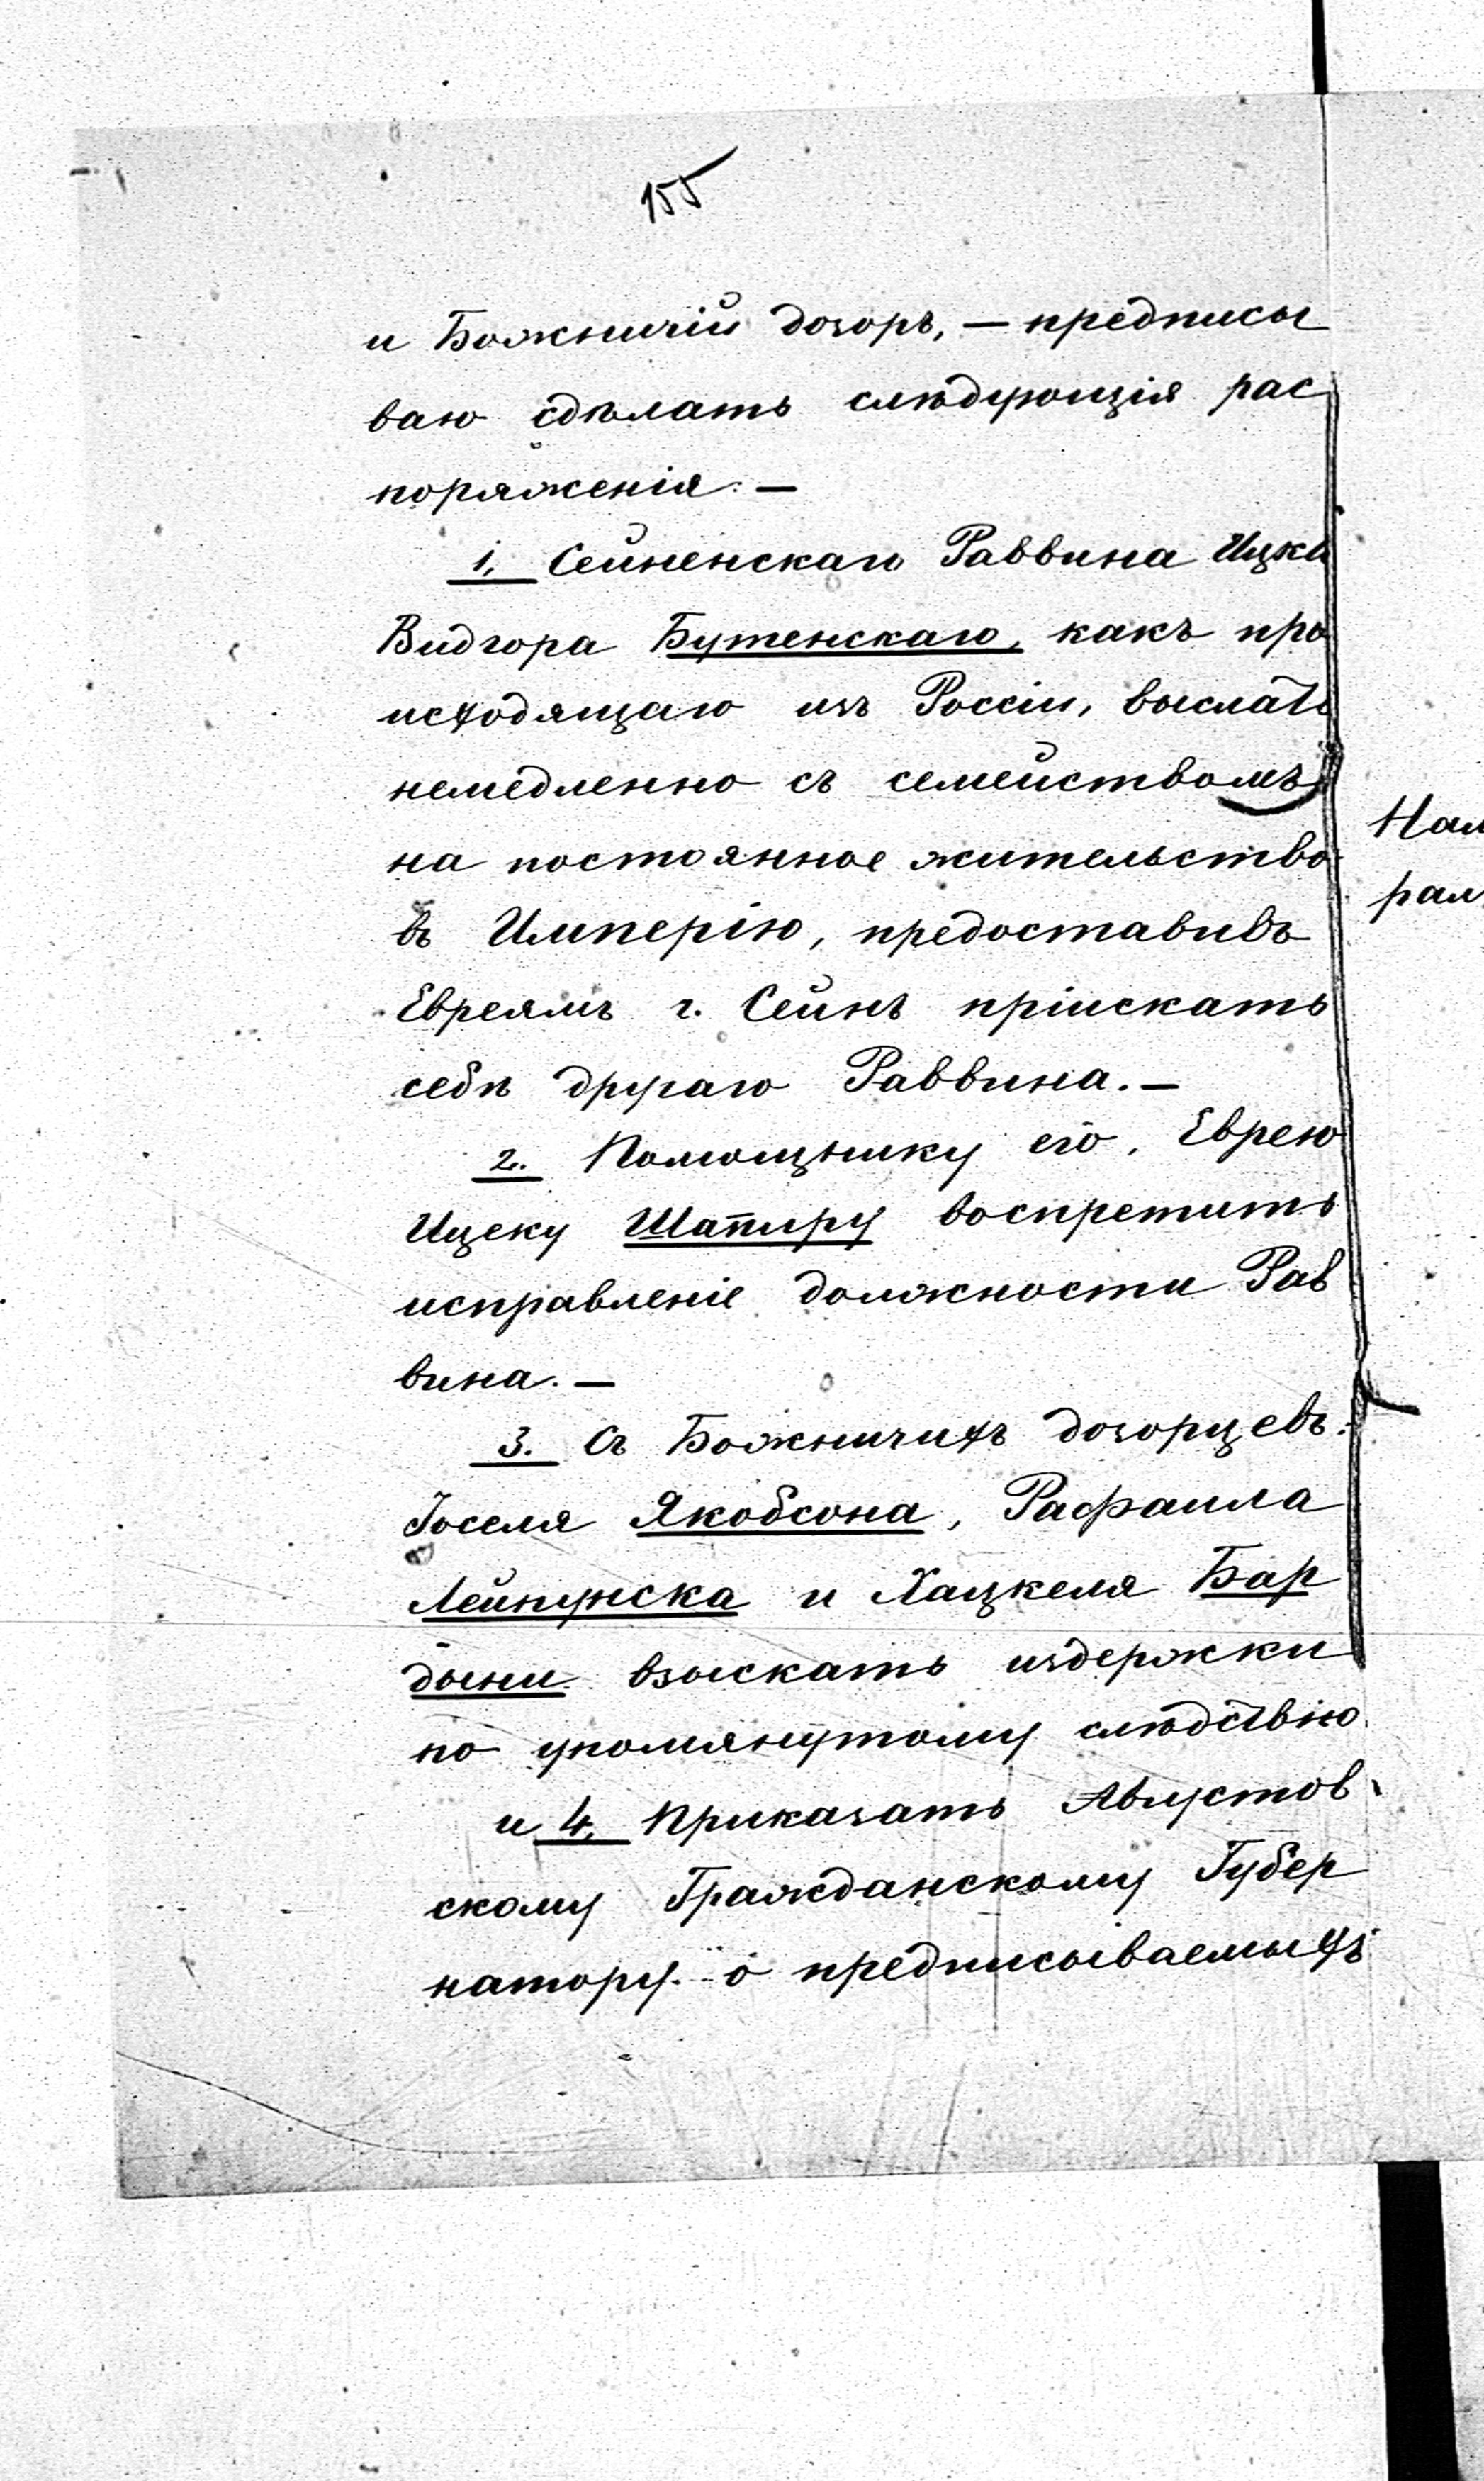 155
и Божничій дозоръ, — предписы
ваю сдѣлать слѣдующія рас
поряженія. —
1. Сейненскаго Раввина Ицка
Видгора Бутенскаго, какъ про
исходящаго изъ Россіи, выслать
немедленно съ семействомъ
на постоянное жительство
въ Имперію, предоставивъ
Евреямъ г. Сейнъ пріискать
себѣ другаго Раввина. —
2. Помощнику его, Еврею
Ицеку Шапиру воспретить
исправленіе должности Рав
вина. —
3. Съ Божничихъ дозорцевъ:
Іоселя Якобсона, Рафаила
Лейпунска и Хацкеля Бар
дыни взыскать издержки
по упомянутому слѣдствію
и 4. Приказать Августов
скому Гражданскому Губер
натору о предписываемыхъ